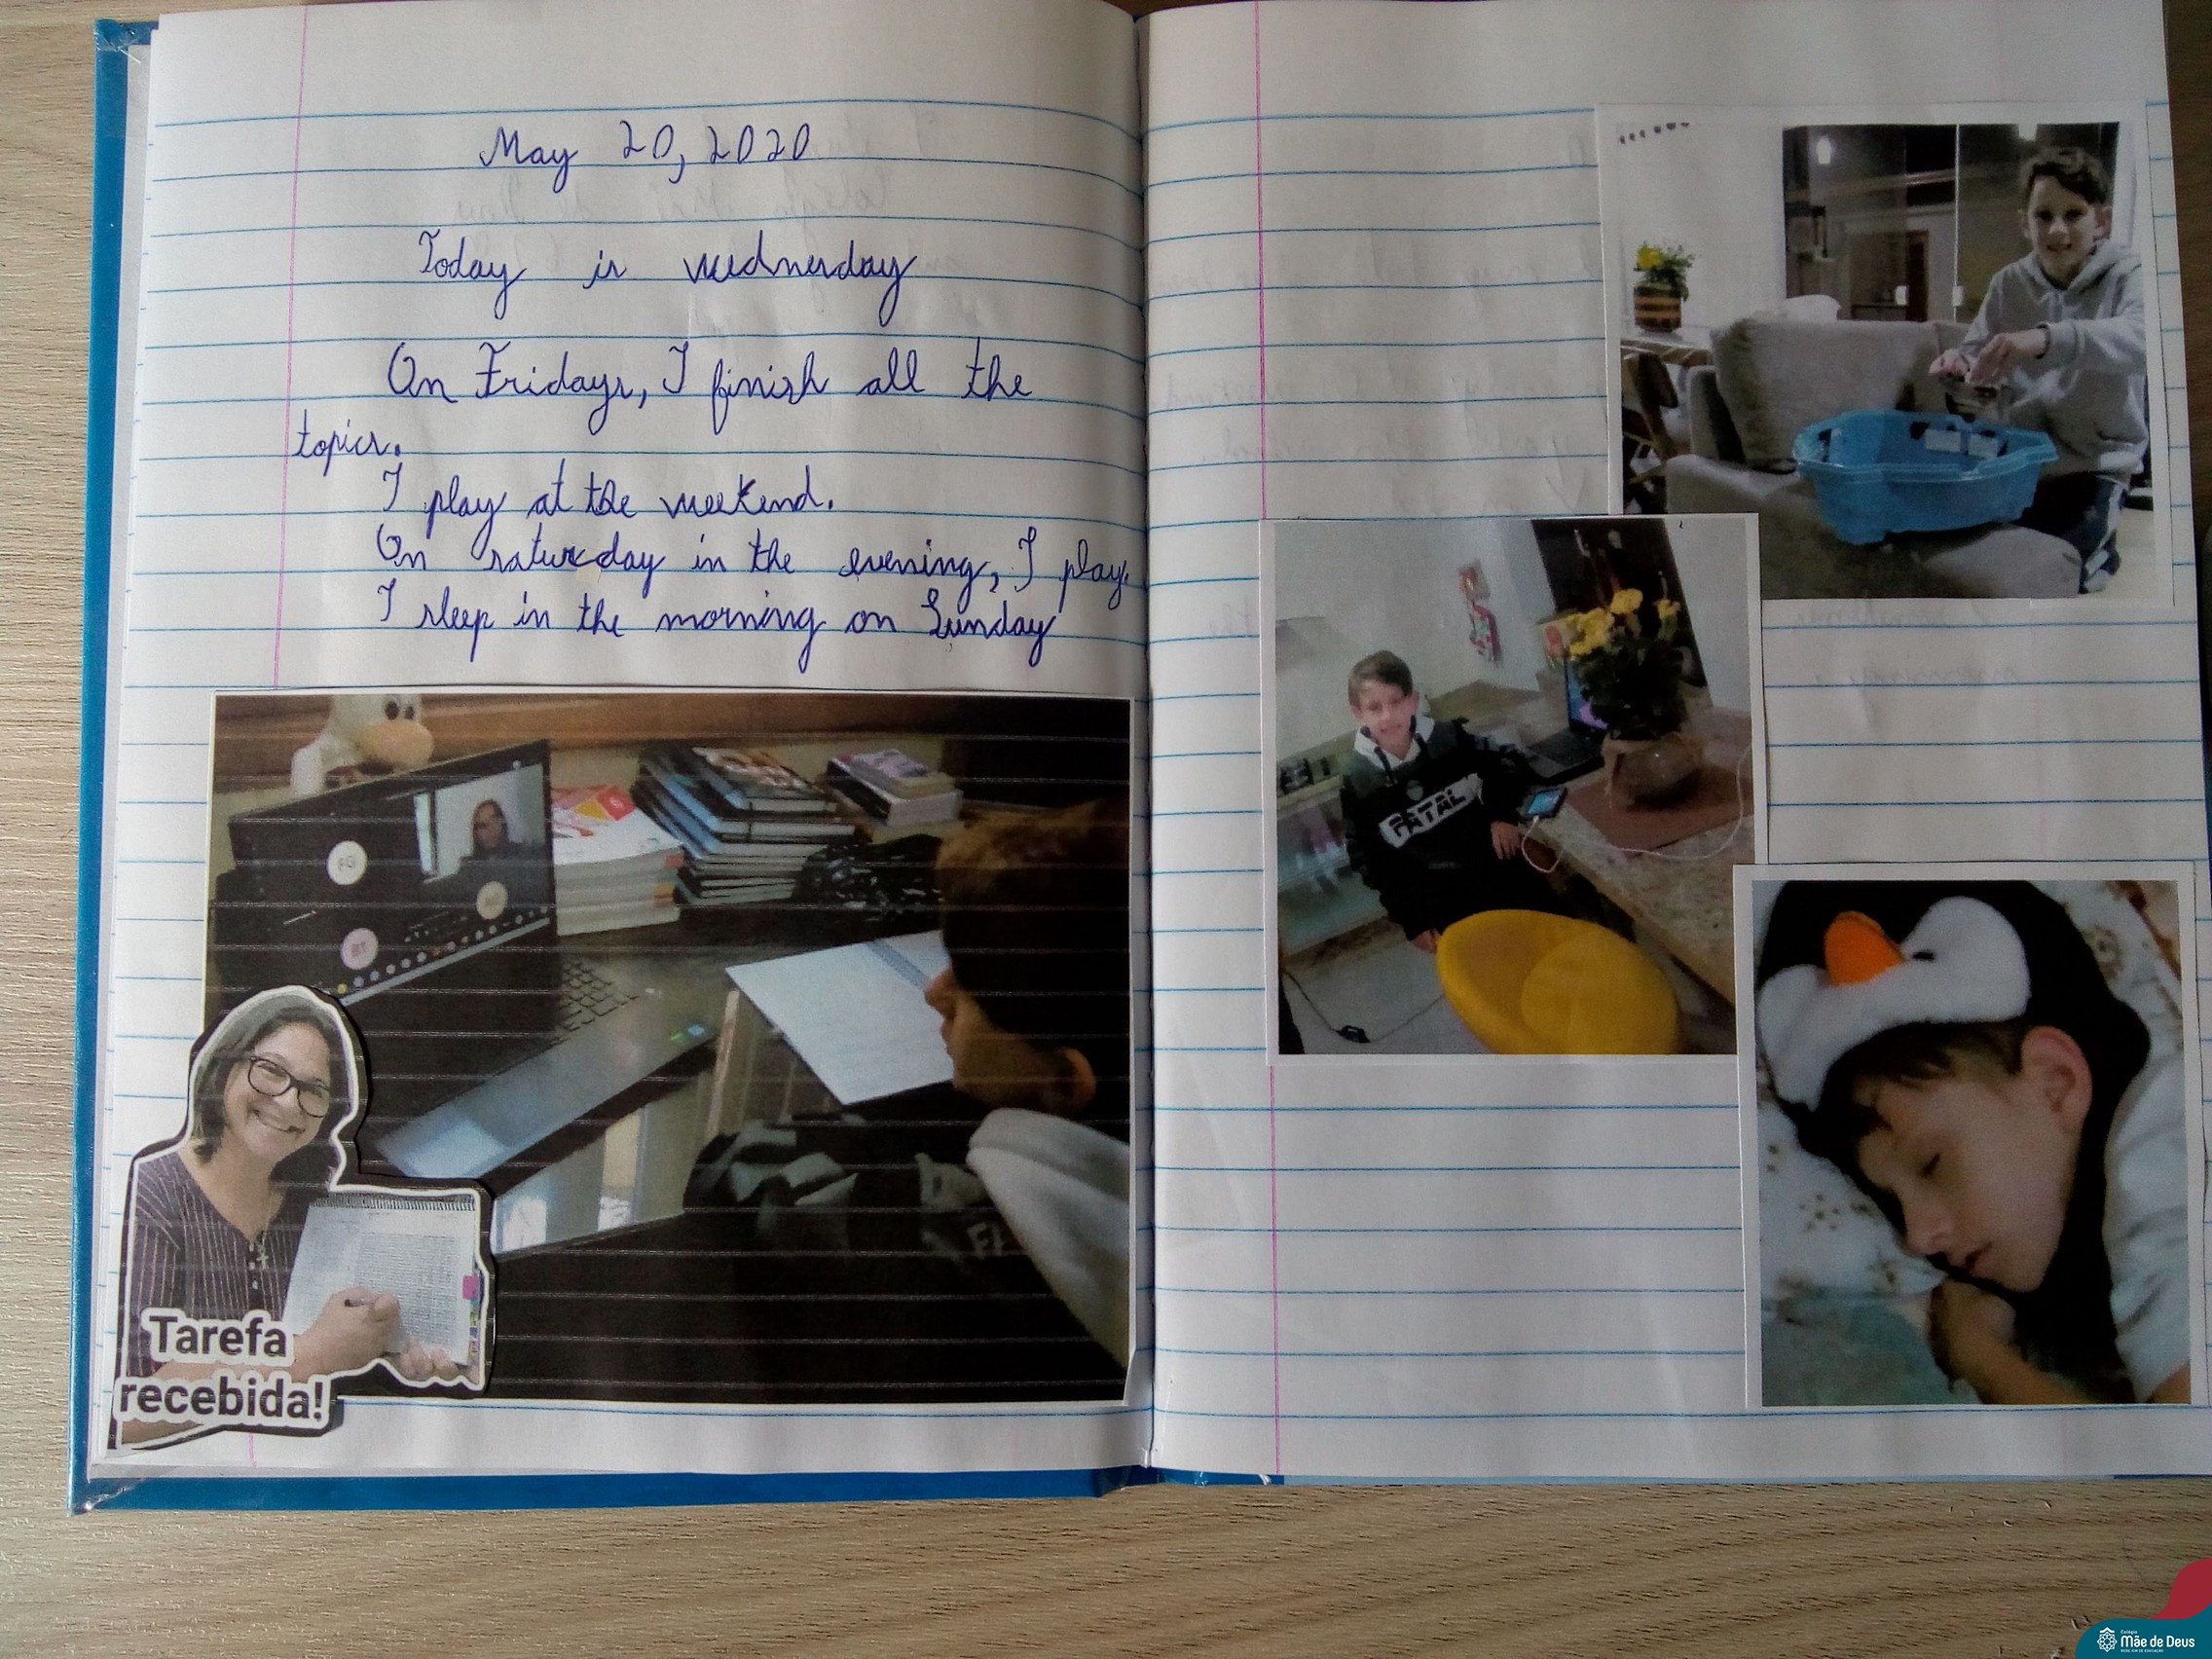 May 20, 2020
Today is wednesday
On Fridays, I finish all the
topics.
I play at the weekend.
On saturday in the evening, I play.
I sleep in the morning on Sunday
FG
BT
Tarefa
recebida!
FATAL
Colégio
Mãe de Deus